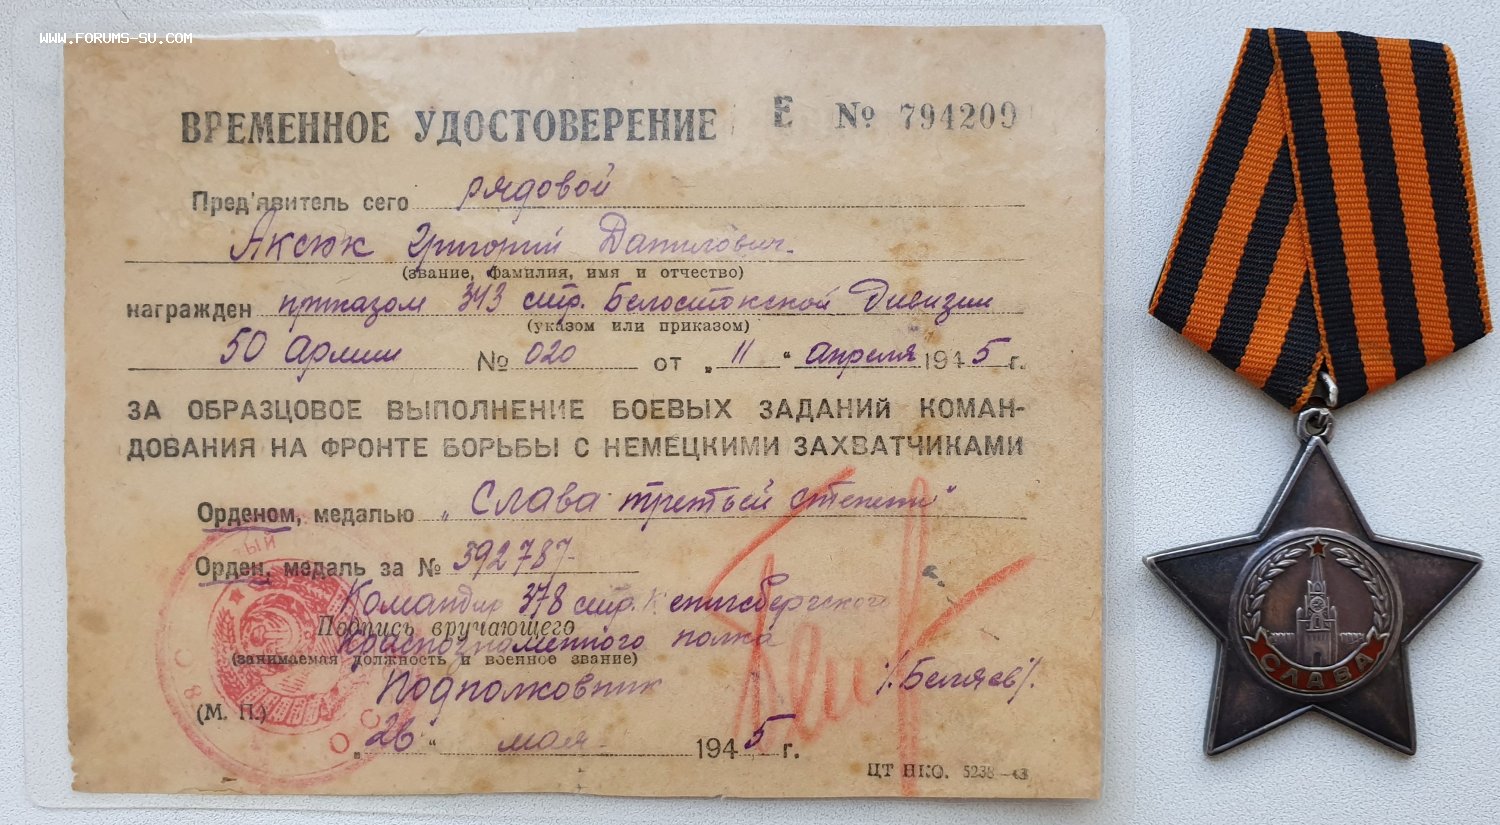 WWW.FORUMS-SU.COM
ВРЕМЕННОЕ УДОСТОВЕРЕНИЕ Е № 794209
Пред'явитель сего рядовой
Аксюк Григорий Данилович
(звание, фамилия, имя и отчество)
награжден приказом 343 стр. Белостокской Дивизии
(указом или приказом)
50 Армии № 020 от „11“ апреля 1945 г.
ЗА ОБРАЗЦОВОЕ ВЫПОЛНЕНИЕ БОЕВЫХ ЗАДАНИЙ КОМАН-
ДОВАНИЯ НА ФРОНТЕ БОРЬБЫ С НЕМЕЦКИМИ ЗАХВАТЧИКАМИ
Орденом, медалью „Слава третьей степени“
Орден, медаль за № 392787
Командир 378 стр. Кенигсбергского
Подпись вручающего
Краснознаменного полка
(занимаемая должность и военное звание)
Подполковник /Беляев/.
(М. П.)
„26“ мая 1945 г.
ЦТ НКО. 5238—43
СЛАВА